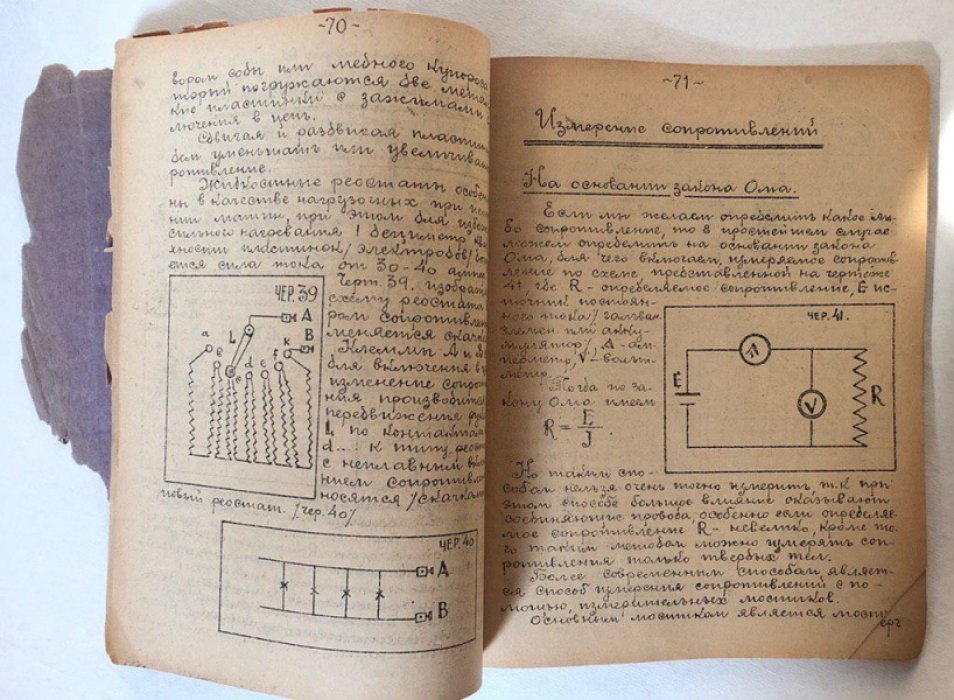 ~70~
вором соды или медного купороса
торый погружаются две метал
кие пластинки с зажимами
лючения в цепь.
Сдвигая и раздвигая пластин
дем уменьшать или увеличиват
ротивление.
Жидкостные реостаты особен
ны в качестве нагрузочных при
нии машин, при этом для избеж
сильного нагревания 1 дециметр
хности пластинок/электродов/
ется сила тока от 30-40 ампе
Черт. 39. изображ
схему реостата
ром сопротивлен
меняется скачка
Клеммы А и В
для включения в
изменение сопро
ния производится
передвижения
L по контактам
d.... К типу реос
с неплавным
нием сопротивл
носятся /скачкам
повый реостат. /Чер. 40/.
ЧЕР. 39
A
B
L
a
в
c
d
e
f
к
ЧЕР. 40
A
B
~71~
Измерение сопротивлений
На основании закона Ома.
Если мы желаем определить какое ли-
бо сопротивление, то в простейшем случае
можем определить на основании закона
Ома, для чего включаем, измеряемое сопротив-
ление по схеме, представленной на чертеже
41, где R - определяемое сопротивление, E ис-
точник постоян-
ного тока/гальван.
элемент или акку-
мулятор/, А - ам-
перметр, V - вольт-
метр.
Тогда по за-
кону Ома имеем
R = E/J .
ЧЕР. 41.
E
A
V
R
Но таким спо-
собом нельзя очень точно измерить, т.к при
этом способе большое влияние оказывают
соединяющие провода, особенно если определяе-
мое сопротивление R - невелико, кроме то-
го таким методом можно измерять соп-
ротивления только твердых тел.
Более современным способом, являет-
ся способ измерения сопротивлений с по-
мощью, измерительных мостиков.
Основным мостиком является мост